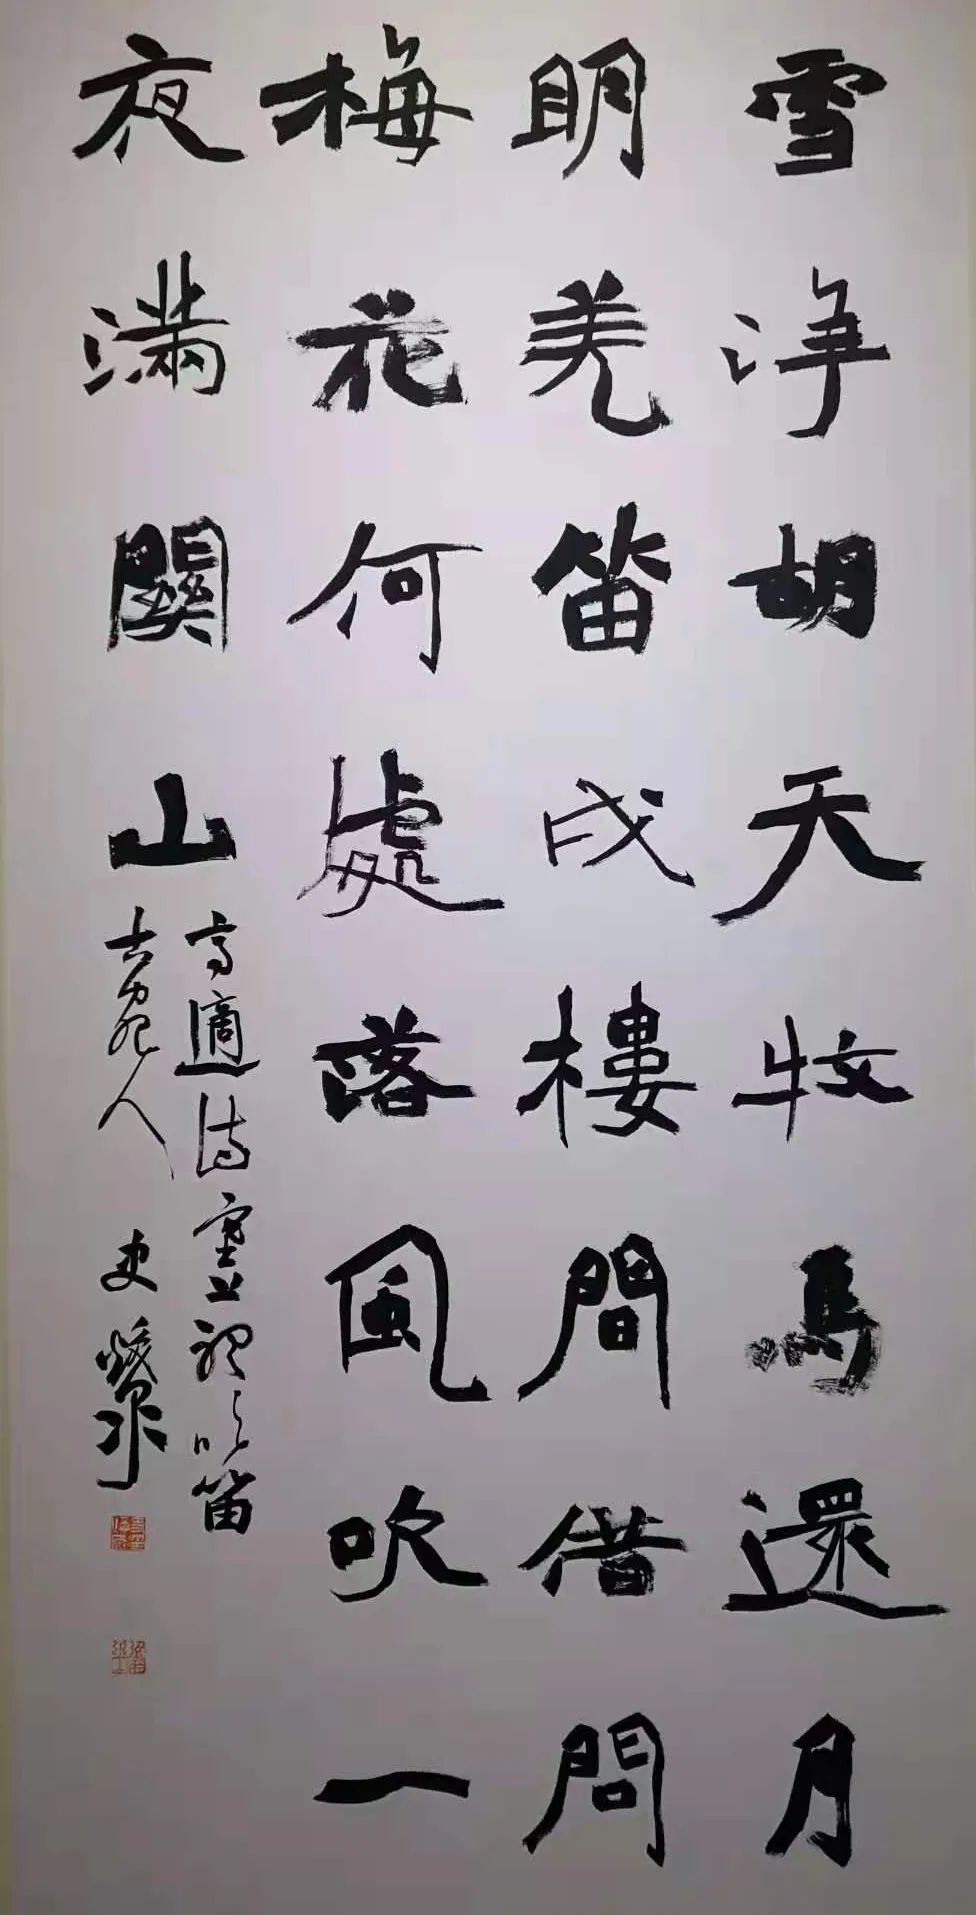 雪淨胡天牧馬還月
明羌笛戍樓間借問
梅花何處落風吹一
夜滿關山
高適詩塞上聽吹笛
古宛人 史焕